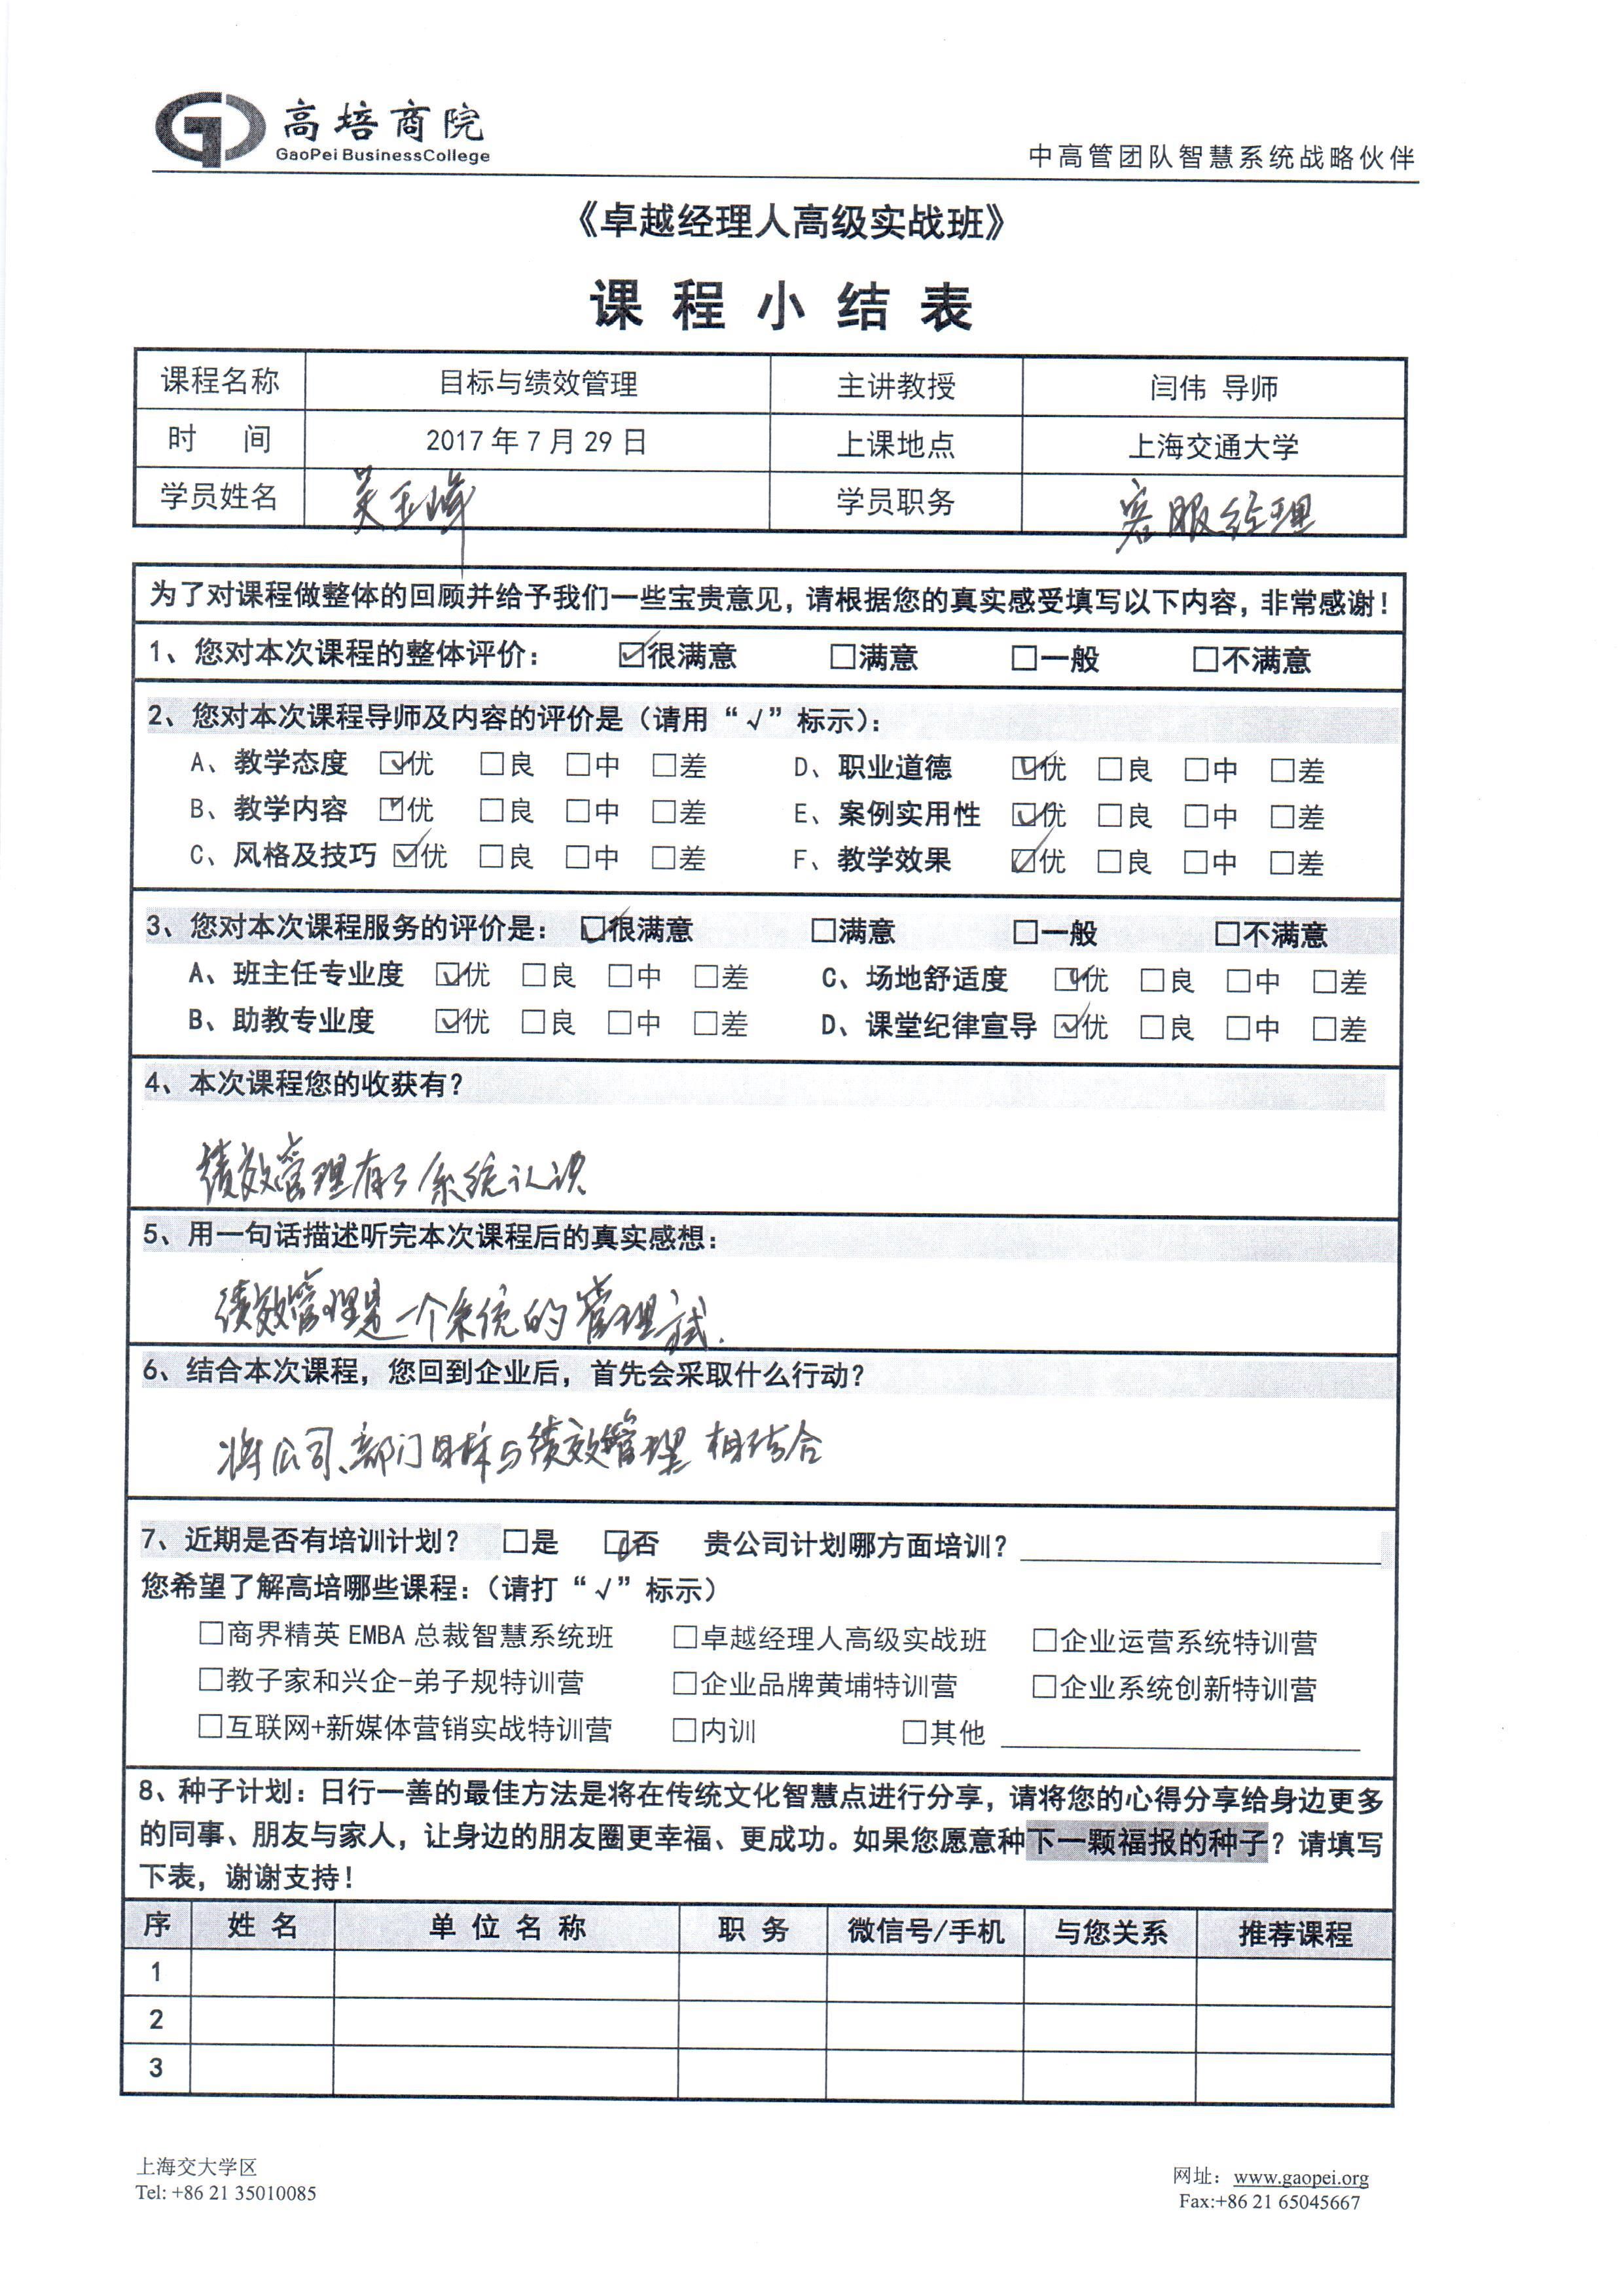 高培商院
GaoPei BusinessCollege
中高管团队智慧系统战略伙伴
《卓越经理人高级实战班》
课程小结表
课程名称 目标与绩效管理 主讲教授 闫伟 导师
时 间 2017年7月29日 上课地点 上海交通大学
学员姓名 吴玉峰 学员职务 客服经理
为了对课程做整体的回顾并给予我们一些宝贵意见，请根据您的真实感受填写以下内容，非常感谢！
1、您对本次课程的整体评价： ☑很满意 □满意 □一般 □不满意
2、您对本次课程导师及内容的评价是（请用“√”标示）：
A、教学态度 ☑优 □良 □中 □差 D、职业道德 ☑优 □良 □中 □差
B、教学内容 ☑优 □良 □中 □差 E、案例实用性 ☑优 □良 □中 □差
C、风格及技巧 ☑优 □良 □中 □差 F、教学效果 ☑优 □良 □中 □差
3、您对本次课程服务的评价是： ☑很满意 □满意 □一般 □不满意
A、班主任专业度 ☑优 □良 □中 □差 C、场地舒适度 ☑优 □良 □中 □差
B、助教专业度 ☑优 □良 □中 □差 D、课堂纪律宣导 ☑优 □良 □中 □差
4、本次课程您的收获有？
绩效管理有了系统认识
5、用一句话描述听完本次课程后的真实感想：
绩效管理是一个系统的管理
6、结合本次课程，您回到企业后，首先会采取什么行动？
将公司、部门目标与绩效管理相结合
7、近期是否有培训计划？ □是 ☑否 贵公司计划哪方面培训？
您希望了解高培哪些课程：（请打“√”标示）
□商界精英EMBA总裁智慧系统班 □卓越经理人高级实战班 □企业运营系统特训营
□教子家和兴企-弟子规特训营 □企业品牌黄埔特训营 □企业系统创新特训营
□互联网+新媒体营销实战特训营 □内训 □其他
8、种子计划：日行一善的最佳方法是将在传统文化智慧点进行分享，请将您的心得分享给身边更多
的同事、朋友与家人，让身边的朋友圈更幸福、更成功。如果您愿意种下一颗福报的种子？请填写
下表，谢谢支持！
序 姓名 单位名称 职务 微信号/手机 与您关系 推荐课程
1
2
3
上海交大学区
Tel: +86 21 35010085
网址：www.gaopei.org
Fax:+86 21 65045667